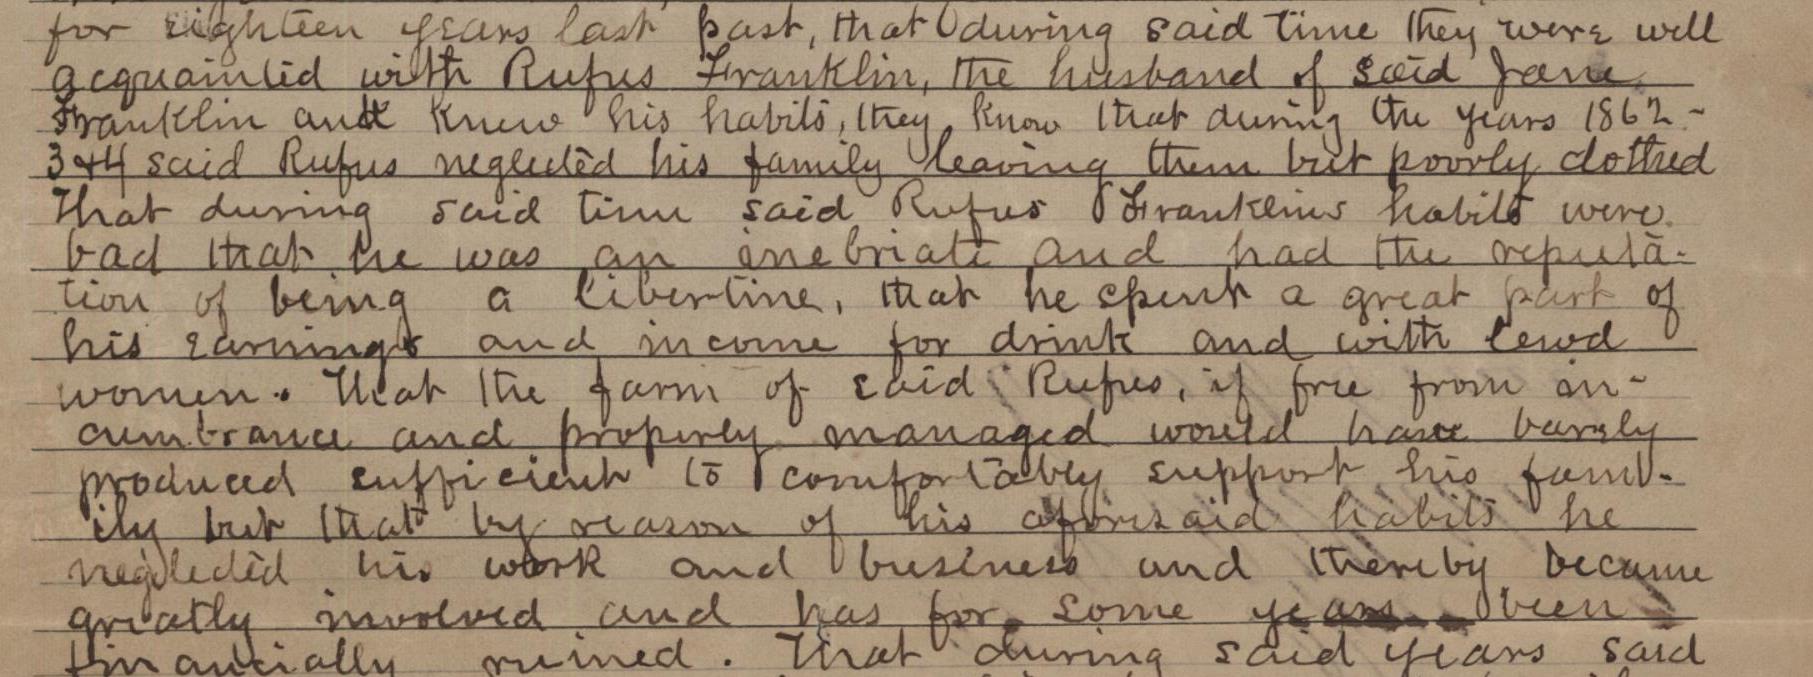 for eighteen years last past, that during said time they were well
acquainted with Rufus Franklin, the husband of said Jane
Franklin and knew his habits, they know that during the years 1862-
3 & 4 said Rufus neglected his family leaving them but poorly clothed
That during said time said Rufus Franklins habits were
bad that he was an inebriate and had the reputa-
tion of being a libertine, that he spent a great part of
his earnings and income for drink and with lewd
women. That the farm of said Rufus, if free from in-
cumbrance and properly managed would have barely
produced sufficient to comfortably support his fam-
ily but that by reason of his aforesaid habits he
neglected his work and business and thereby became
greatly involved and has for some years been
financially ruined. That during said years said